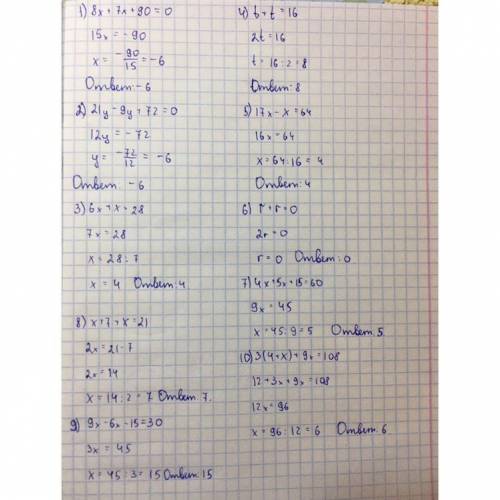 1) 8x + 7x + 90 = 0
15x = -90
x = -90/15 = -6
Ответ: -6
2) 21y - 9y + 72 = 0
12y = -72
y = -72/12 = -6
Ответ: -6
3) 6x + x = 28
7x = 28
x = 28 : 7
x = 4 Ответ: 4
8) x + 7 + x = 21
2x = 21 - 7
2x = 14
x = 14 : 2 = 7 Ответ: 7.
9) 9x - 6x - 15 = 30
3x = 45
x = 45 : 3 = 15 Ответ: 15
4) t + t = 16
2t = 16
t = 16 : 2 = 8
Ответ: 8
5) 17x - x = 64
16x = 64
x = 64 : 16 = 4
Ответ: 4
6) r + r = 0
2r = 0
r = 0 Ответ: 0
7) 4x + 5x + 15 = 60
9x = 45
x = 45 : 9 = 5 Ответ: 5.
10) 3(4 + x) + 9x = 108
12 + 3x + 9x = 108
12x = 96
x = 96 : 12 = 6 Ответ: 6